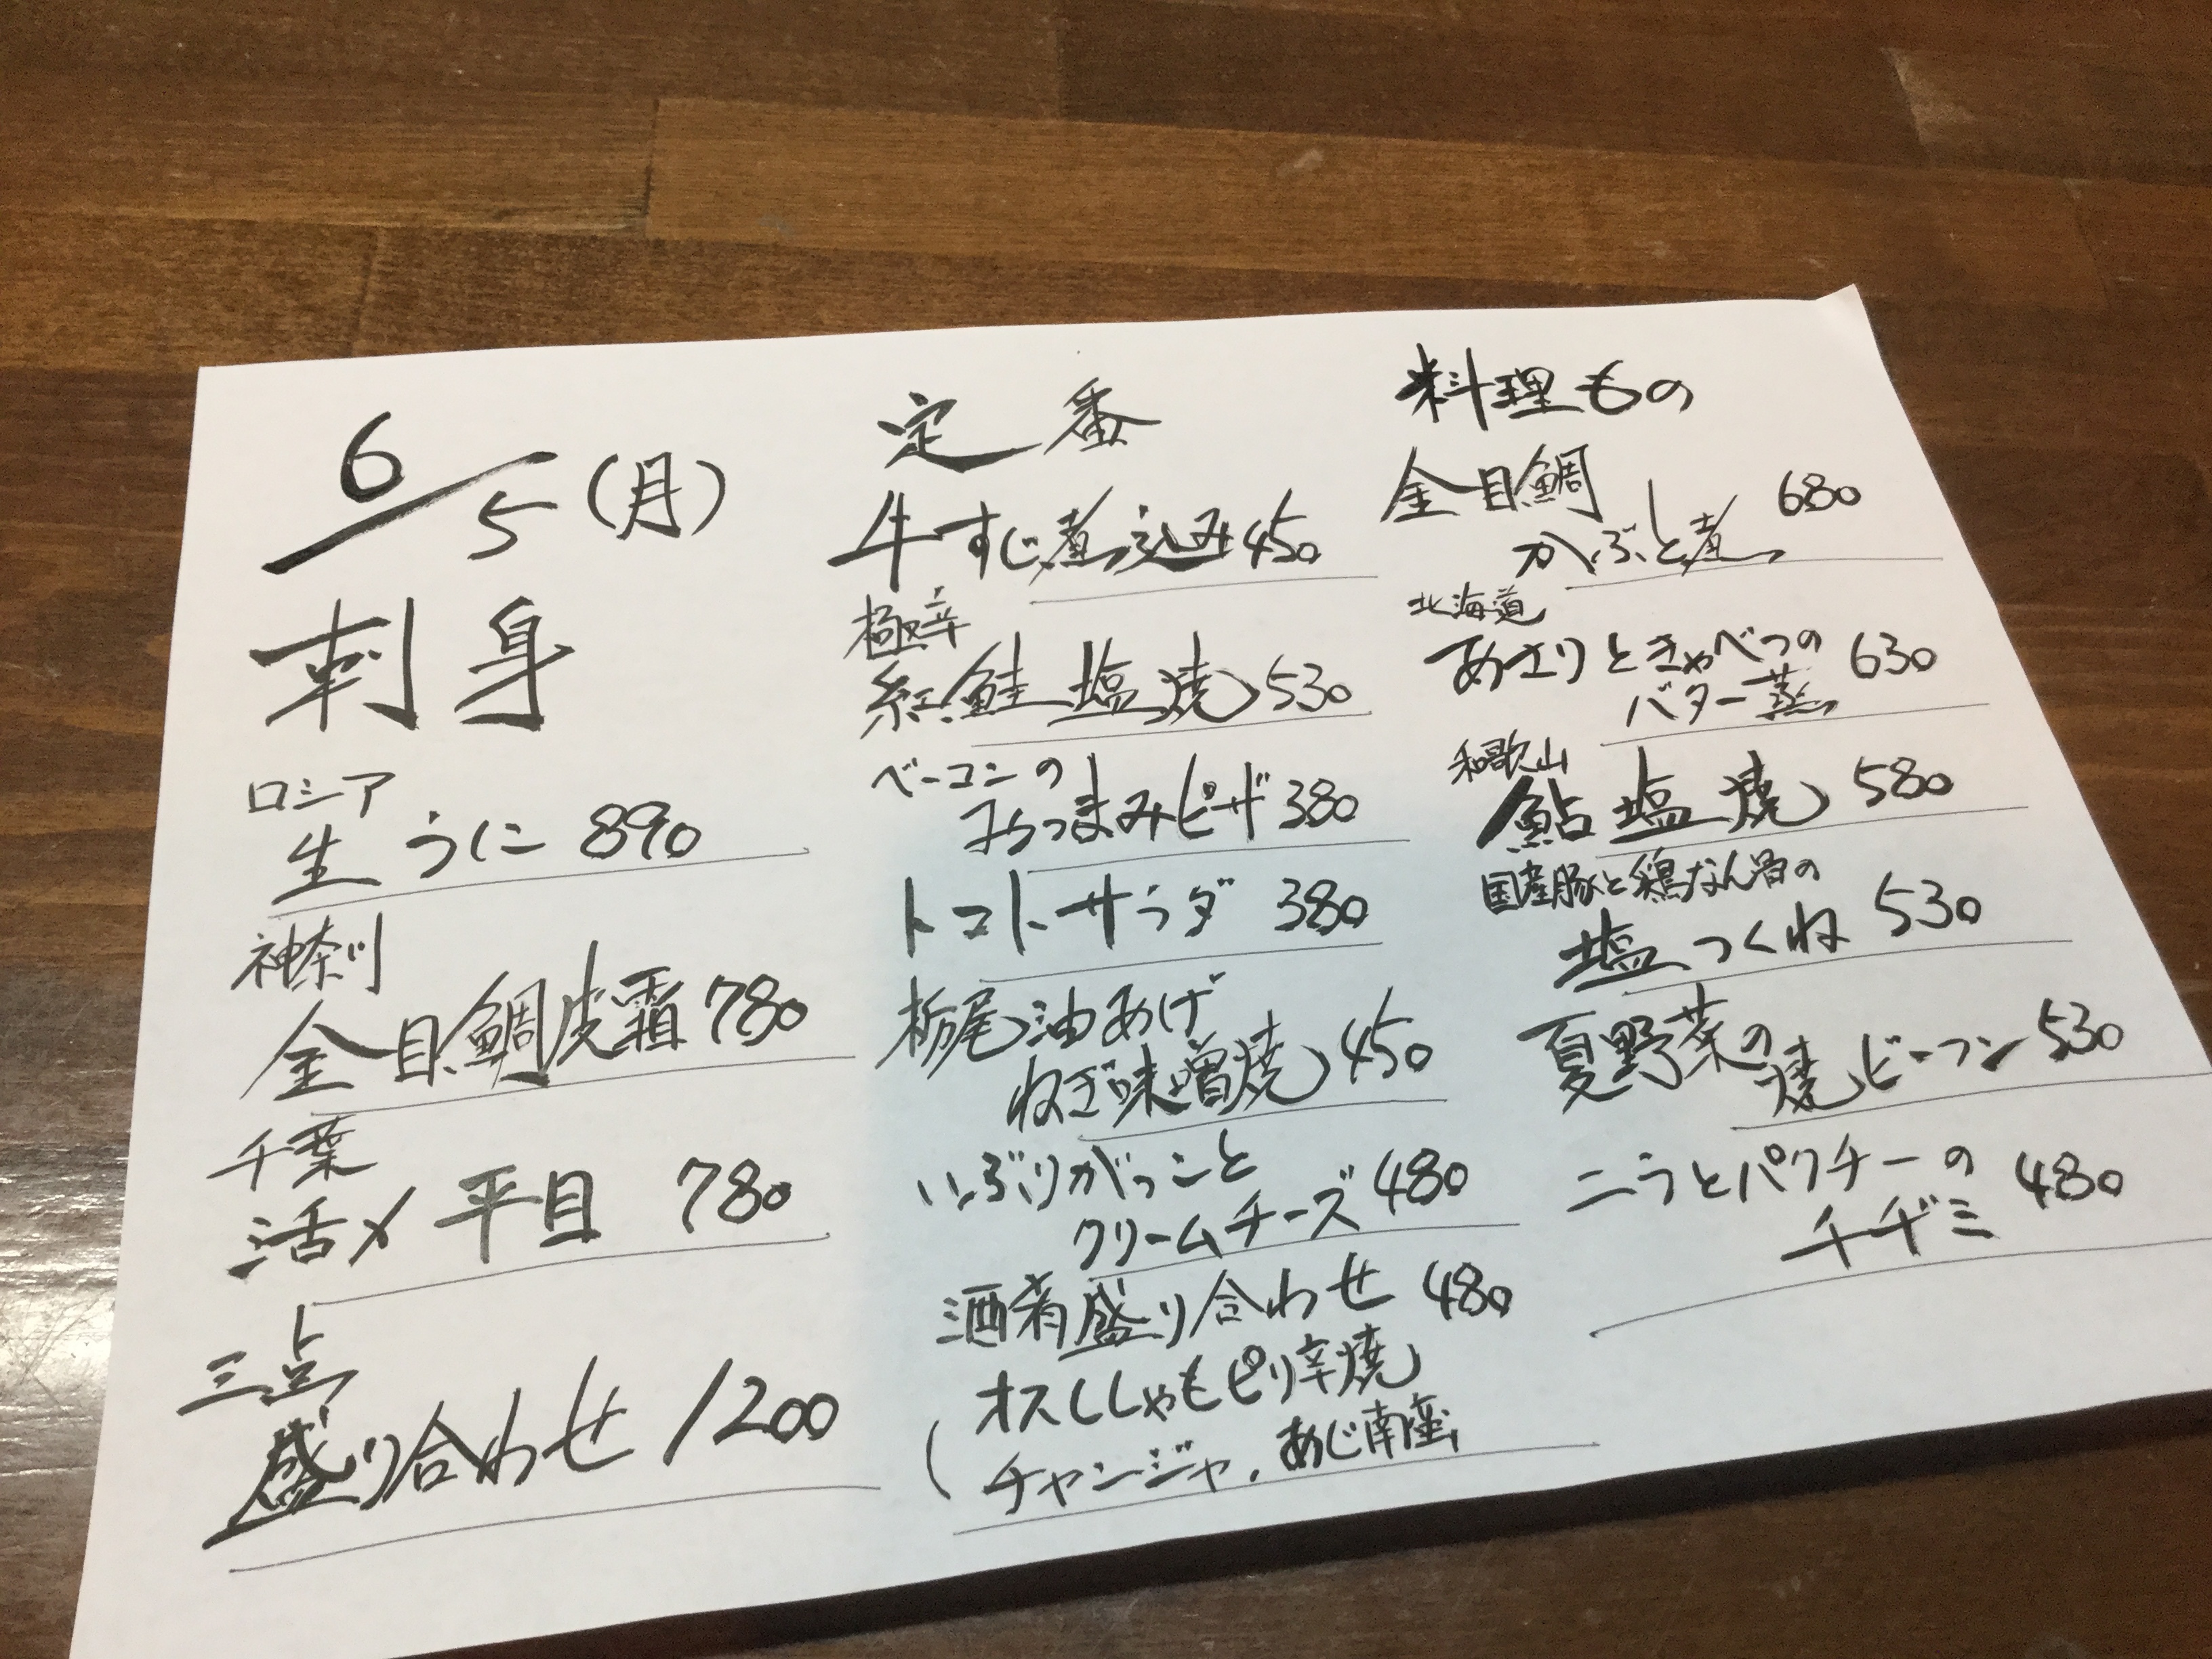 6/5(月)
刺身
ロシア
生うに 890
神奈川
金目鯛皮霜 780
千葉
活〆平目 780
三点
盛り合わせ 1200
定番
牛すじ煮込み 450
極辛
紅鮭塩焼 530
ベーコンの
おつまみピザ 380
トマトサラダ 380
栃尾油あげ
ねぎ味噌焼 450
いぶりがっこと
クリームチーズ 480
酒肴盛り合わせ 480
(オスししゃもピリ辛焼
チャンジャ、あじ南蛮
料理もの
金目鯛
かぶと煮 680
北海道
あさりときゃべつの
バター蒸 630
和歌山
鮎塩焼 580
国産豚と鶏なん骨の
塩つくね 530
夏野菜の
焼ビーフン 530
ニラとパクチーの
チヂミ 480